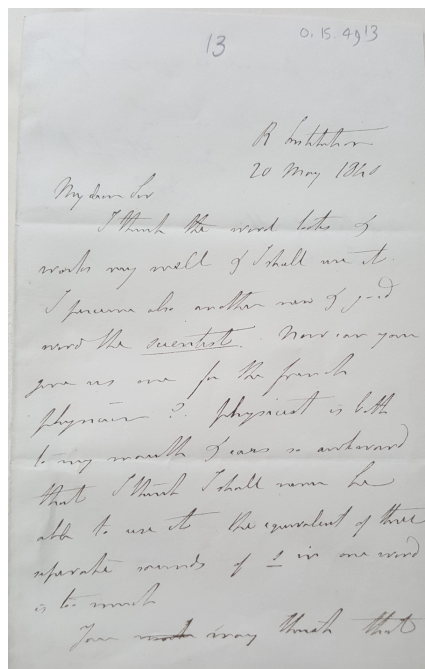 13
O. 15. 49 13
R Institution
20 May 1840
My dear Sir
I think the word looks &
works very well & I shall use it.
I perceive also another new & good
word the scientist. Now can you
give us one for the french
physicien ? physicist is both
to my mouth & ears so awkward
that I think I shall never be
able to use it the equivalent of three
separate sounds of s in one word
is too much
You may think that